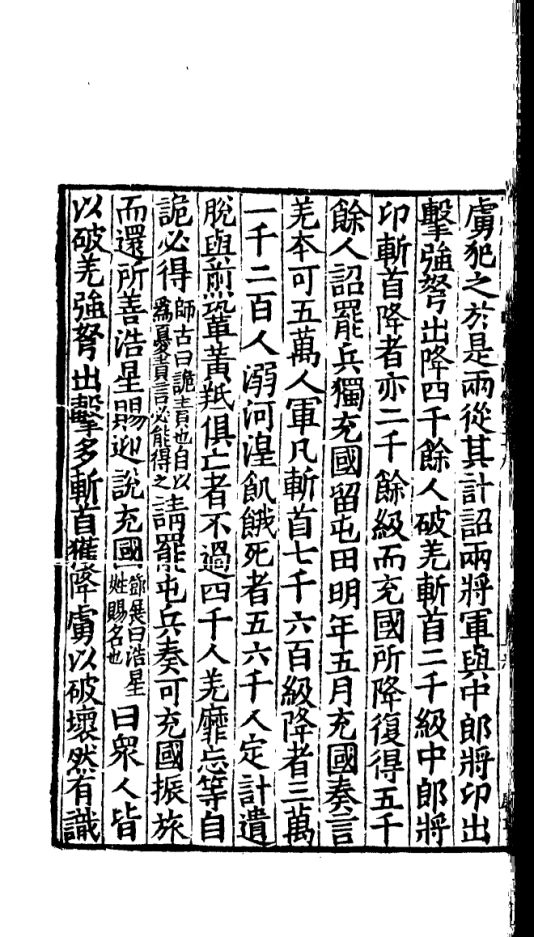 虜犯之於是兩從其計詔兩將軍與中郎將卬出
擊強弩出降四千餘人破羌斬首二千級中郎將
卬斬首降者亦二千餘級而充國所降復得五千
餘人詔罷兵獨充國留屯田明年五月充國奏言
羌本可五萬人軍凡斬首七千六百級降者三萬
一千二百人溺河湟飢餓死者五六千人定計遺
脫與煎鞏黃羝俱亡者不過四千人羌靡忘等自
詭必得師古曰詭責也自以爲憂責言必能得之請罷屯兵奏可充國振旅
而還所善浩星賜迎說充國鄧展曰浩星姓賜名也曰眾人皆
以破羌強弩出擊多斬首獲降虜以破壞然有識